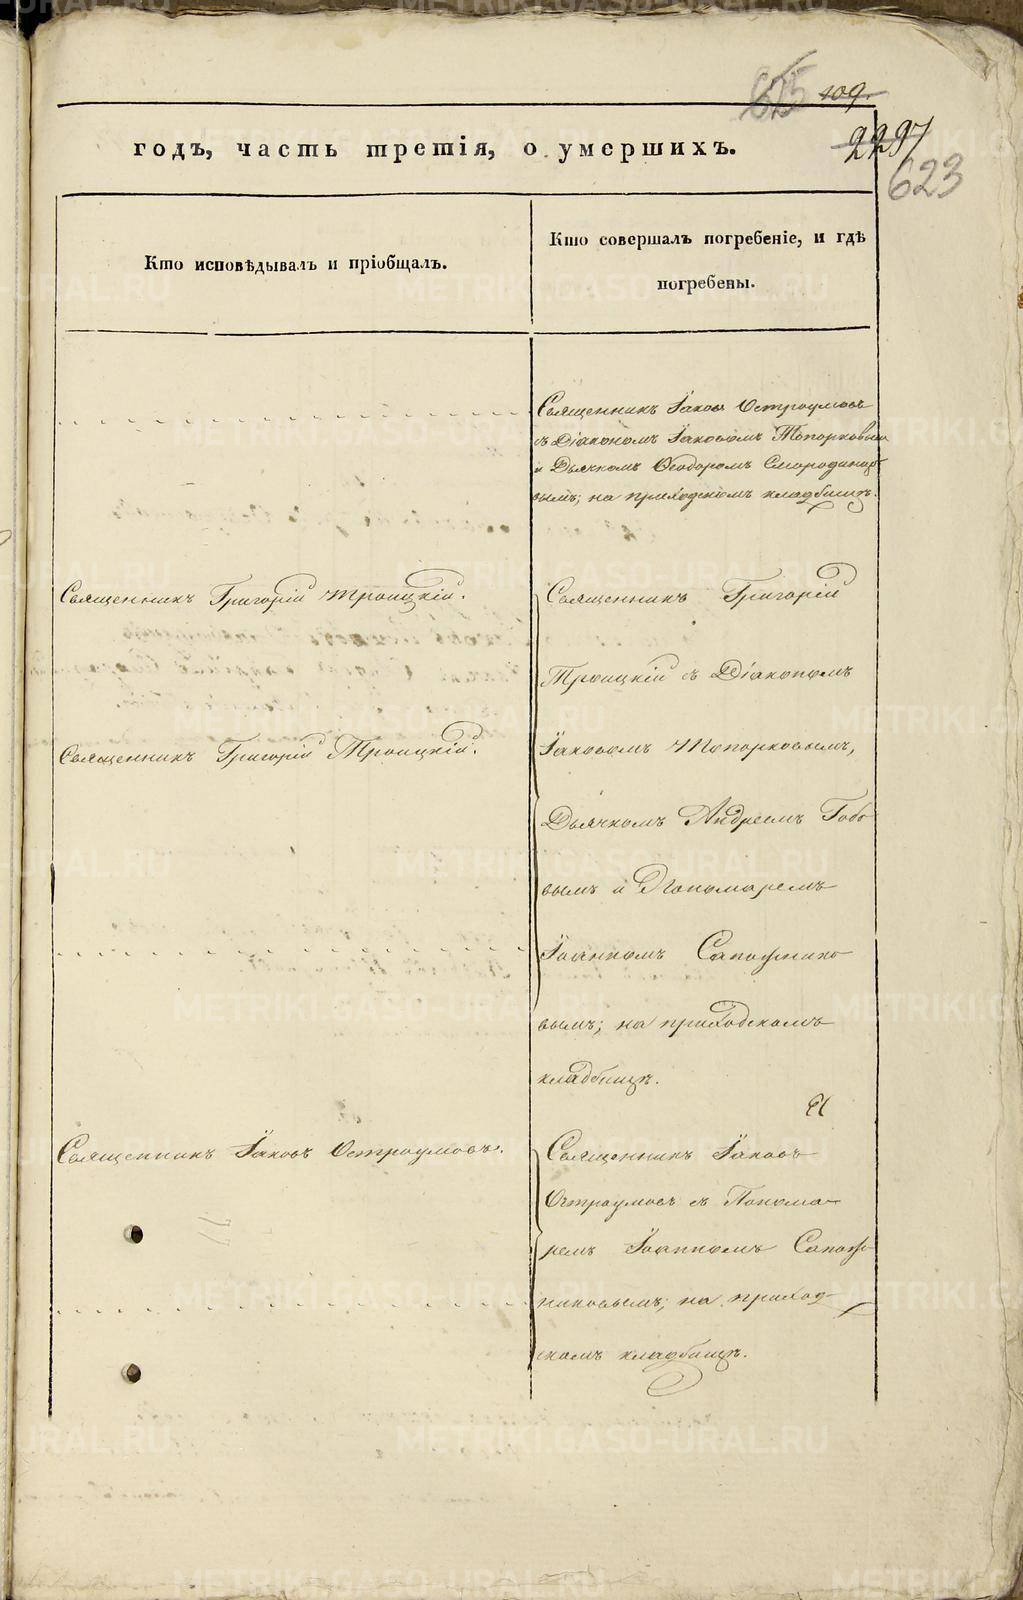 625 109.
2297
623
годъ, часть третія, о умершихъ.
Кто исповѣдывалъ и пріобщалъ.
Кто совершалъ погребеніе, и гдѣ
погребены.
Священникъ Іаковъ Остроумовъ
съ Діакономъ Іаковомъ Топорковымъ
и Дьячкомъ Ѳеодоромъ Смородинцо-
вымъ; на приходскомъ кладбищѣ.
Священникъ Григорій Троицкій.
Священникъ Григорій
Троицкій съ Діакономъ
Священникъ Григорій Троицкій.
Іаковомъ Топорковымъ,
Дьячкомъ Андреемъ
вымъ и Пономаремъ
Іоанномъ Сапожнико-
вымъ; на приходскомъ
кладбищѣ.
Священникъ Іаковъ Остроумовъ.
Священникъ Іаковъ
Остроумовъ съ Понома-
ремъ Іоанномъ Сапож-
никовымъ; на приход-
скомъ кладбищѣ.
METRIKI.GASO-URAL.RU